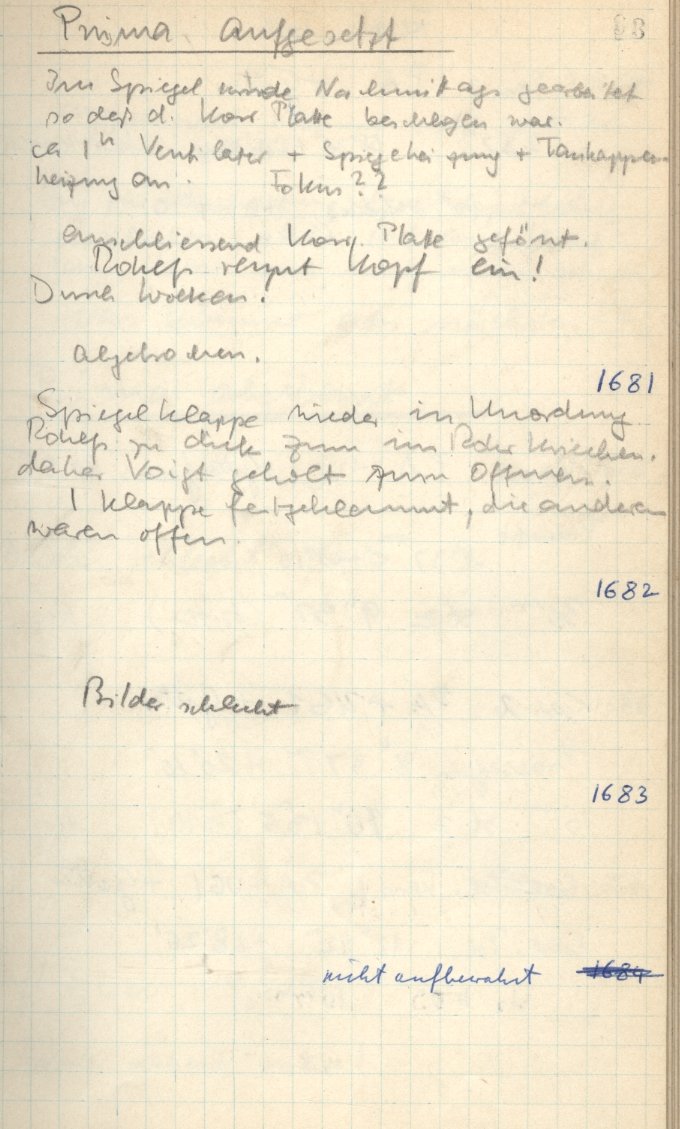 Prisma aufgesetzt
Im Spiegel wurde Nachmittags gearbeitet
so daß d. Korr Platte beschlagen war.
ca 1h Ventilator + Spiegelheizung + Taukappen-
heizung an. Fokus??
anschliessend Korr. Platte gefönt.
rennt Kopf ein!
Dunst Wolken.
abgebrochen.
1681
Spiegelklappe wieder in Unordnung
zu dick zum im Rohr kriechen.
daher Voigt geholt zum Öffnen.
1 Klappe festgeklemmt, die anderen
waren offen.
1682
Bilder schlecht
1683
nicht aufbewahrt 1684